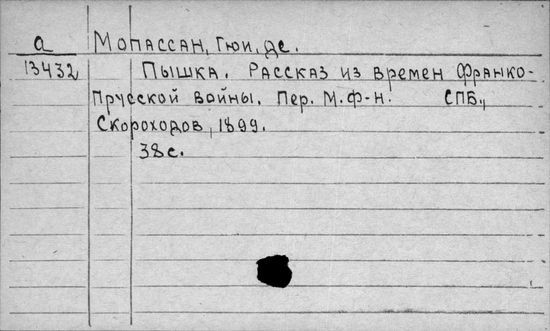 а Мопассан, Гюи, де.
13432 Пышка. Рассказ из времен Франко-
Прусской войны. Пер. М.Ф-н. СПБ.,
Скороходов, 1899.
38с.